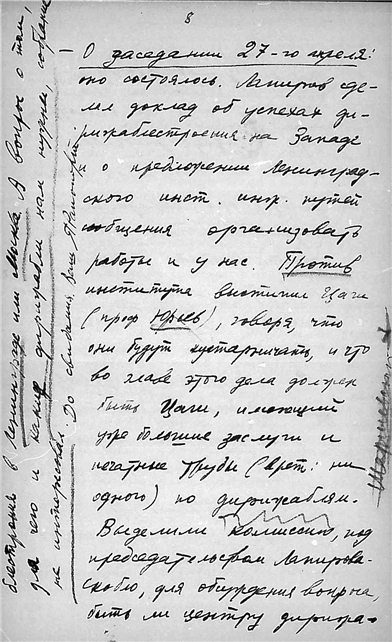 8
— О заседании 27-го апреля:
оно состоялось. Лапиров сде-
лал доклад об успехах ди-
рижаблестроения на Западе
и о предложении Ленинград-
ского инст. инж. путей
сообщения организовать
работы и у нас. Против
института выступил Цаги
(проф. Юрьев), говоря, что
они будут кустарничать, и что
во главе этого дела должен
быть Цаги, имеющий
уже большие заслуги и
печатные труды (врет: ни
одного) по дирижаблям.
Выделили комиссию, под
председательством Лапирова-
Скобло, для обсуждения вопроса,
быть ли центру дирижа-
блестроения в Ленинграде или Москве. А вопрос о том,
для чего и какие дирижабли нам нужны, собрание
не интересовал. До свидания. Ваш